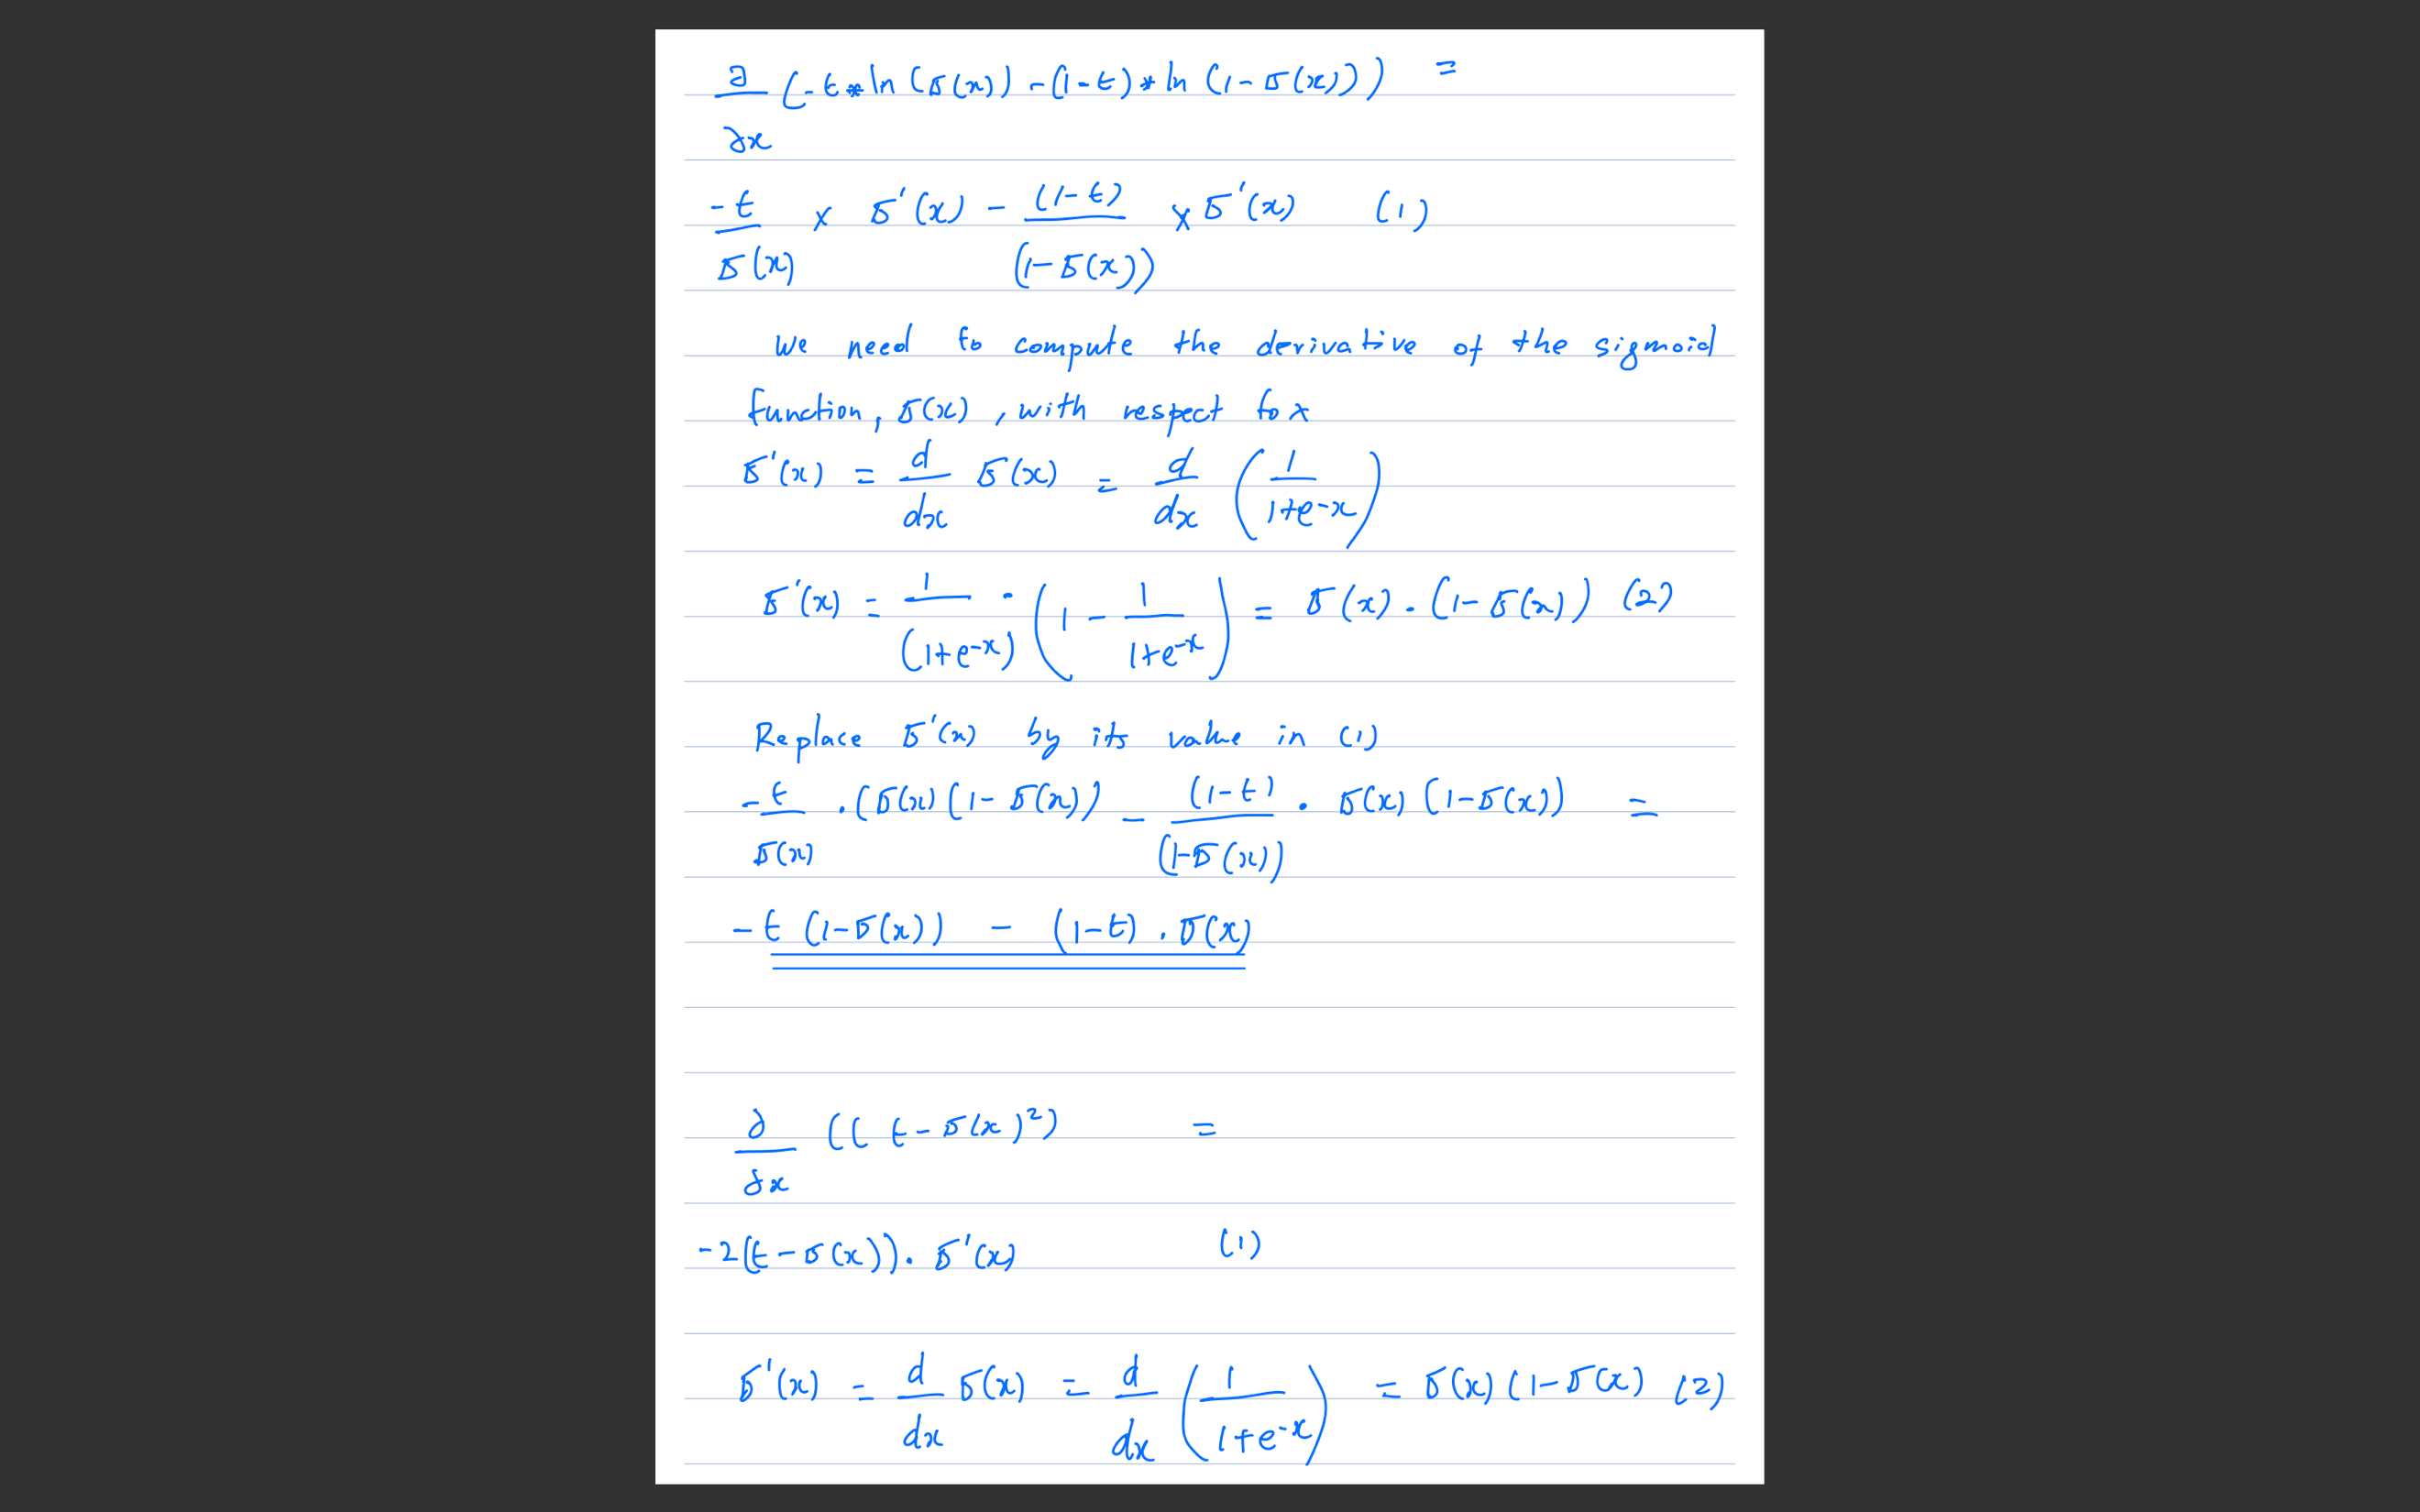 ∂/∂x (-t*ln(σ(x)) -(1-t)*ln(1-σ(x))) =
-t/σ(x) × σ'(x) - (1-t)/(1-σ(x)) × σ'(x) (1)
we need to compute the derivative of the sigmoid
function, σ(x), with respect to x
σ'(x) = d/dx σ(x) = d/dx (1/(1+e^-x))
σ'(x) = 1/(1+e^-x) · (1 - 1/(1+e^-x)) = σ(x) · (1-σ(x)) (2)
Replace σ'(x) by its value in (1)
-t/σ(x) · (σ(x)(1-σ(x)) - (1-t)/(1-σ(x)) · σ(x)(1-σ(x)) =
-t (1-σ(x)) - (1-t) · σ(x)
∂/∂x ((t-σ(x)^2) =
-2(t-σ(x)) · σ'(x) (1)
σ'(x) = d/dx σ(x) = d/dx (1/(1+e^-x)) = σ(x)(1-σ(x) (2)